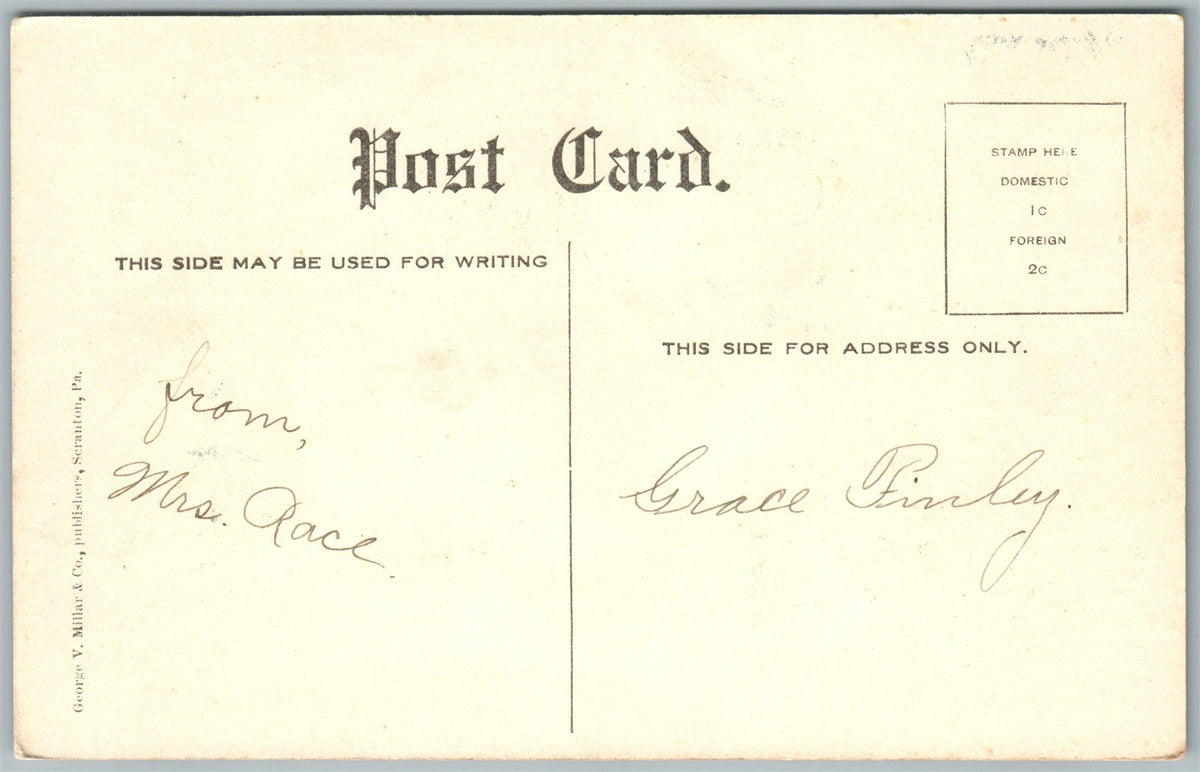 Post Card.
STAMP HERE
DOMESTIC
1c
FOREIGN
2c
THIS SIDE MAY BE USED FOR WRITING
THIS SIDE FOR ADDRESS ONLY.
from,
Mrs. Race.
Grace Finley.
George V. Millar & Co., publishers, Scranton, Pa.